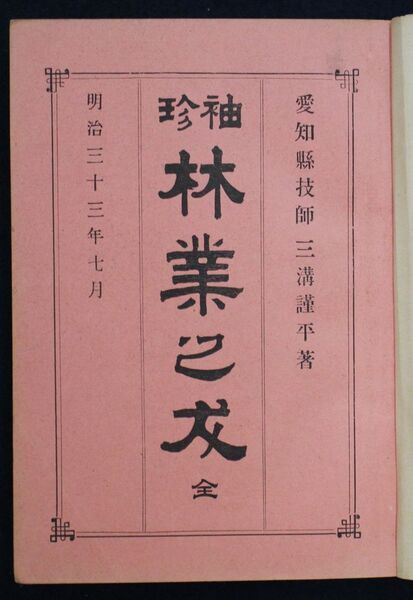 愛知縣技師三溝謹平著
袖珍
林業之友
全
明治三十三年七月